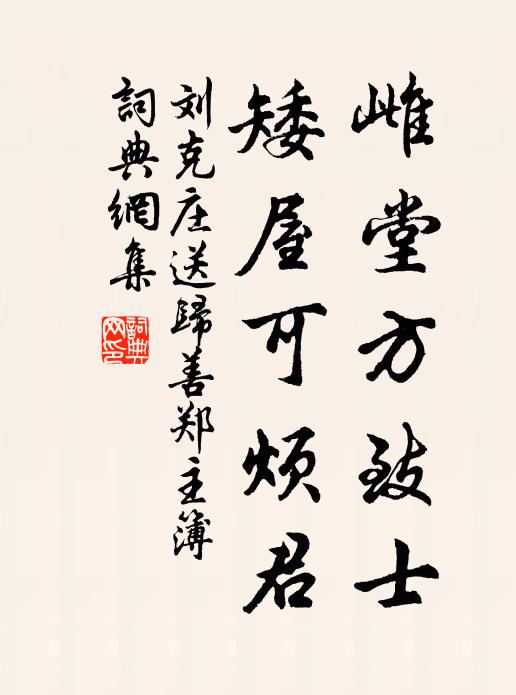 雌堂方致士
矮屋可烦君
刘克庄送歸善郑主簿
詞典網集
詞典网印